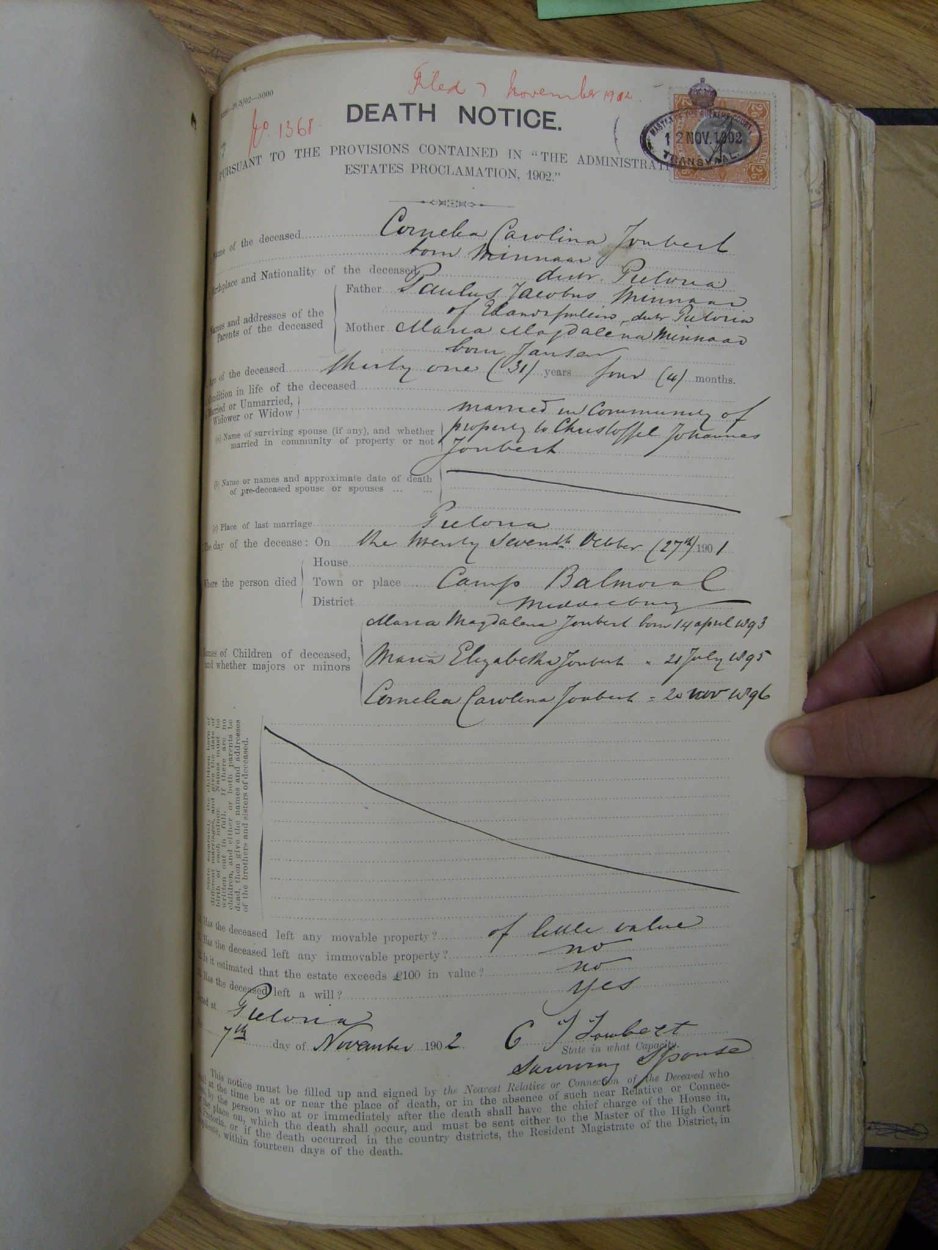 Filed 7 November 1902.
No. 1368
DEATH NOTICE.
MASTER OF THE SUPREME COURT
12 NOV. 1902
TRANSVAAL
PURSUANT TO THE PROVISIONS CONTAINED IN "THE ADMINISTRATI
ESTATES PROCLAMATION, 1902."
Name of the deceased Cornelia Carolina Joubert
born Minnaar
Birthplace and Nationality of the deceased distr. Pretoria
Names and addresses of the Parents of the deceased
Father Paulus Jacobus Minnaar
of distr Pretoria
Mother Maria Magdalena Minnaar
born Jansen
Age of the deceased thirty one (31) years four (4) months.
Condition in life of the deceased
Married or Unmarried,
Widower or Widow
married in Community of
(a) Name of surviving spouse (if any), and whether
married in community of property or not
property to Christoffel Johannes
Joubert
(b) Name or names and approximate date of death
of pre-deceased spouse or spouses ... ...
(c) Place of last marriage Pretoria
The day of the decease: On the twenty seventh October (27th) 1901
Where the person died
House
Town or place Camp Balmoral
District Middelburg
Names of Children of deceased,
and whether majors or minors
Maria Magdalena Joubert born 14 april 1893
Maria Elizabetha Joubert " 21 July 1895
Cornelia Carolina Joubert " 20 nov 1896
State separately the children born of
different marriages, and give the date of
birth of each minor. Names must be
written out in full. If there are no
children, and either or both parents be
dead, then give the names and addresses
of the brothers and sisters of deceased.
Has the deceased left any movable property? of little value
Has the deceased left any immovable property? no
Is it estimated that the estate exceeds £100 in value? no
Has the deceased left a will? yes
Dated at Pretoria
7th day of November 1902
C J Joubert
State in what Capacity.
Surviving Spouse
This notice must be filled up and signed by the Nearest Relative or Connection of the Deceased who
at the time be at or near the place of death, or in the absence of such near Relative or Connec-
by the person who at or immediately after the death shall have the chief charge of the House in,
place on, which the death shall occur, and must be sent either to the Master of the High Court
Pretoria, or if the death occurred in the country districts, the Resident Magistrate of the District, in
within fourteen days of the death.